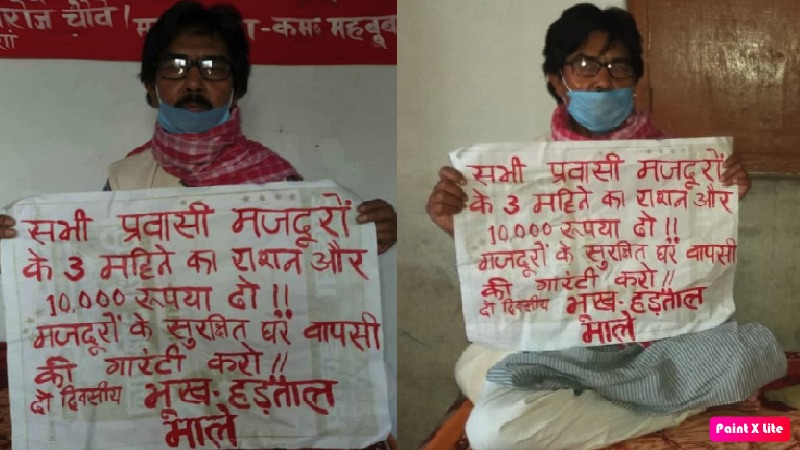 रोज चौबे!
-कम॰ महबूब
सभी प्रवासी मजदूरों
के 3 महिने का राशन और
10,000 रूपया दो !!
मजदूरों के सुरक्षित घरें वापसी
की गारंटी करो !!
दो दिवसीय भूख-हड़ताल
माले
सभी प्रवासी मजदूरों
के 3 महिने का राशन और
10,000 रूपया दो !!
मजदूरों के सुरक्षित घरें वापसी
की गारंटी करो !!
दो दिवसीय भूख-हड़ताल
माले
Paint X Lite